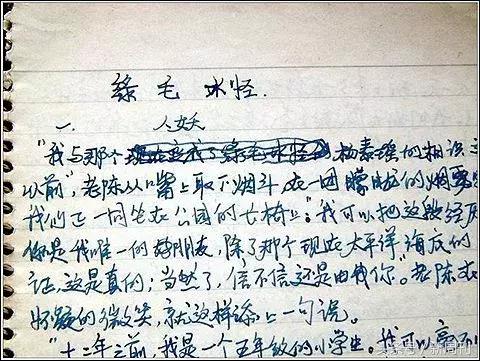 绿毛水怪.
一. 人妖
"我与那个 杨素瑶的相识
以前"老陈从嘴上取下烟斗,在一团朦胧的烟雾
我们正一同坐在公园的长椅上:"我可以把这段经历
你是我唯一的好朋友,除了那个现在太平洋海底的
证,这是真的;当然了,信不信还是由我你。"老陈在
怀疑的微笑,就这样添上一句说。
"十二年之前,我是一个五年级的小学生。我可以毫不